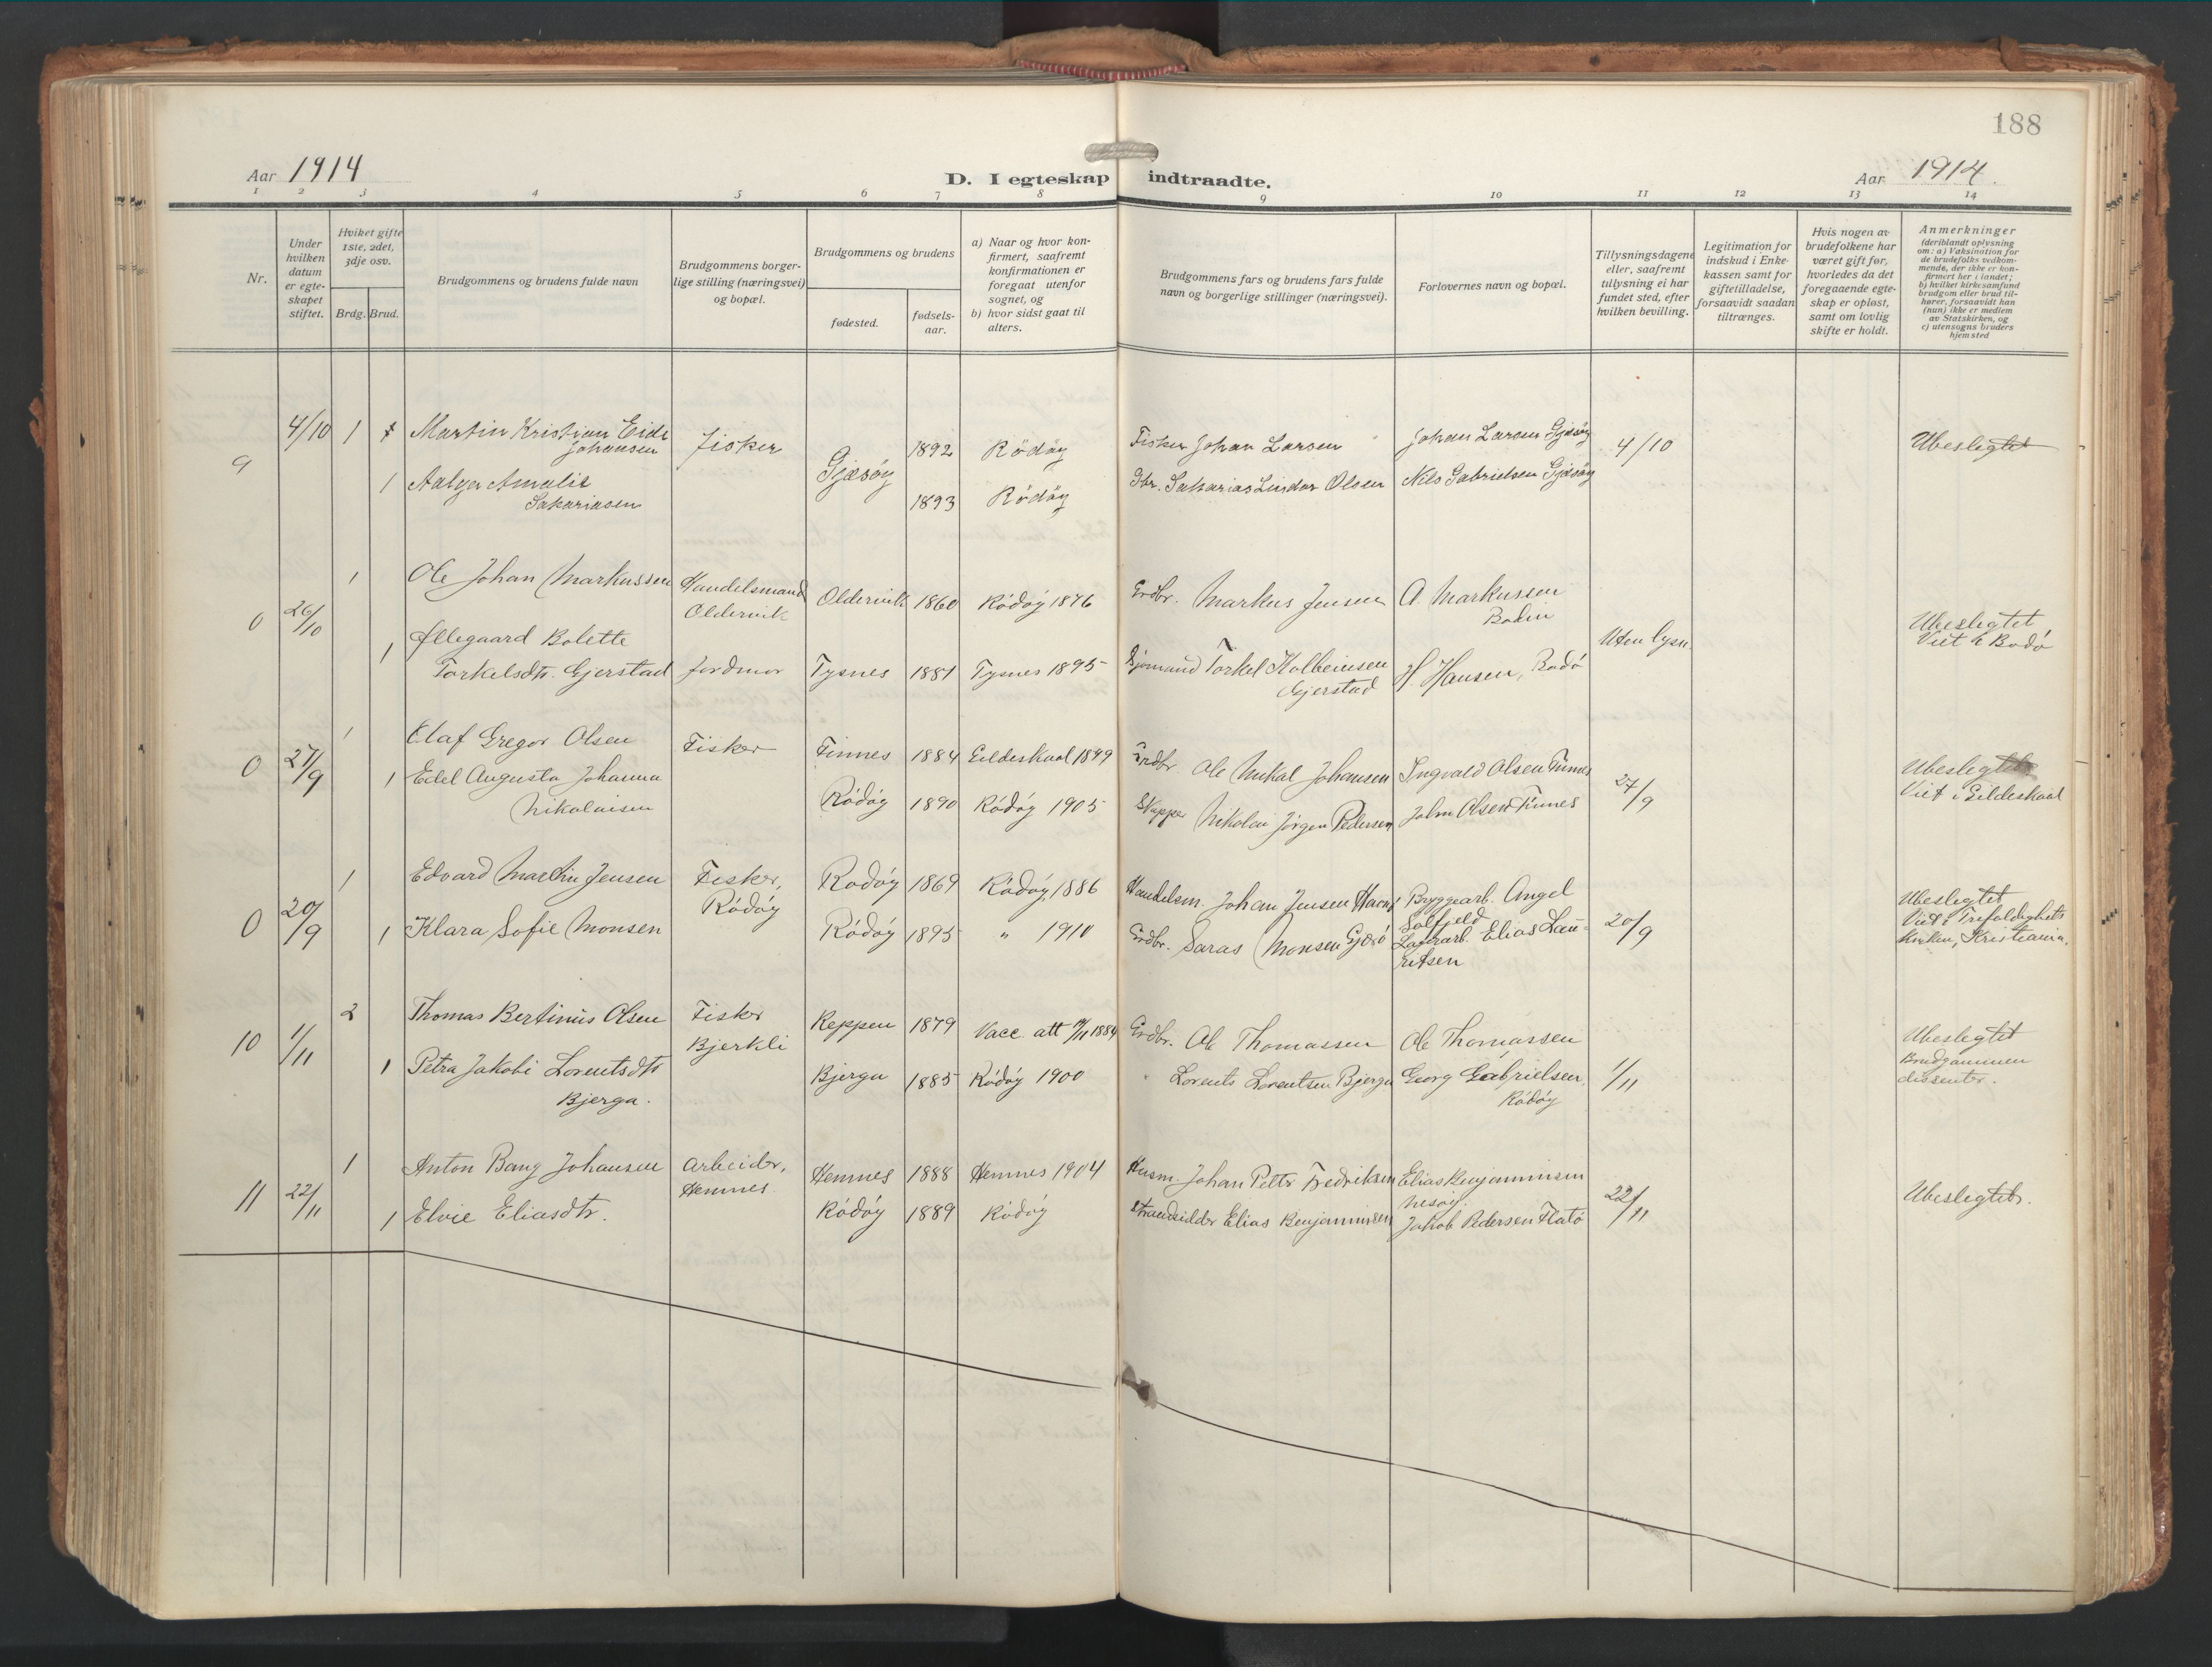 188
Aar 1914
D. I egteskap indtraadte.
Aar 1914.
1 2 3 4 5 6 7 8 9 10 11 12 13 14
Nr.
Under
hvilken
datum
er egte-
skapet
stiftet.
Hviket gifte
1ste, 2det,
3dje osv.
Brdg. Brud.
Brudgommens og brudens fulde navn
Brudgommens borger-
lige stilling (næringsvei)
og bopæl.
Brudgommens og brudens
fødested.
fødsels-
aar.
a) Naar og hvor kon-
firmert, saafremt
konfirmationen er
foregaat utenfor
sognet, og
b) hvor sidst gaat til
alters.
Brudgommens fars og brudens fars fulde
navn og borgerlige stillinger (næringsvei).
Forlovernes navn og bopæl.
Tillysningsdagene
eller, saafremt
tillysning ei har
fundet sted, efter
hvilken bevilling.
Legitimation for
indskud i Enke-
kassen samt for
giftetilladelse,
forsaavidt saadan
tiltrænges.
Hvis nogen av
brudefolkene har
været gift før,
hvorledes da det
foregaaende egte-
skap er opløst,
samt om lovlig
skifte er holdt.
Anmerkninger
(deriblandt oplysning
om: a) Vaksination for
de brudefolks vedkom-
mende, der ikke er kon-
firmert her i landet;
b) hvilket kirkesamfund
brudgom eller brud til-
hører, forsaavidt han
(hun) ikke er medlem
av Statskirken, og
c) utensogns bruders
hjemsted
9 4/10 1 Martin Kristian Eide
Johansen
Fisker Gjæsøy 1892 Rødøy
Fisker Johan Larsen Johan Larsen Gjæsøy 4/10 Ubeslegtet
1 Amalie
Sakariasen
1893 Rødøy
Gbr. Sakarias Lindor Olsen Nils Gabrielsen Gjæsøy
0 26/10 1 Ole Johan Markussen
Handelsmand
Oldervik
Oldervik 1860 Rødøy 1876
Grdbr. Markus Jensen A. Markussen
Bodin
Uten lysn.
Ubeslegtet
Viet i Bodø
1 Øllegaard Bolette
Torkelsdtr. Gjerstad
Jordmor Tysnes 1881 Tysnes 1895
Sjømand Torkel Kolbeinsen
Gjerstad
H. Hansen, Bodø
0 27/9 1 Olaf Gregor Olsen
Fisker Finnes 1884 Gildeskaal 1899
Grdbr. Ole Mikal Johansen Ingvald Olsen Finnes
27/9
Ubeslegtet
Viet i Gildeskaal
1 Edel Augusta Johanna
Nikolaisen
Rødøy 1890 Rødøy 1905
Skipper Nikolai Jørgen Pedersen John Olsen Finnes
0 20/9 1 Edvard Martin Jensen
Fisker,
Rødøy
Rødøy 1869 Rødøy, 1886
Handelsm. Johan Jensen
Byggearb. Angel
Solfjeld
20/9
Ubeslegtet
Viet i Trefoldigheds
kirken, Kristiania.
1 Klara Sofie Monsen
Rødøy 1895 " 1910
Grdbr. Saras Monsen Gjærø
Lagerarb. Elias Lau-
ritsen
10 1/11 2 Thomas Bertinus Olsen
Fisker
Bjerkli
Reppen 1879 Vacc. att 19/11 1884
Grdbr. Ole Thomassen Ole Thomassen
1/11
Ubeslegtet
Brudgommen
dissenter.
1 Petra Jakobi Lorentsdtr
Bjerga.
Bjerga 1885 Rødøy 1900
" Lorents Lorentsen Bjerga Georg Gabrielsen,
Rødøy
11 22/11 1 Anton Bang Johansen
Arbeider,
Hemnes
Hemnes 1888 Hemnes 1904
Husm. Johan Petter Fredriksen Elias Benjaminsen
Nesøy.
22/11 Ubeslegtet.
1 Elvie Eliasdtr.
Rødøy 1889 Rødøy
Strandsidder Elias Benjaminsen Jakob Pedersen Flatø